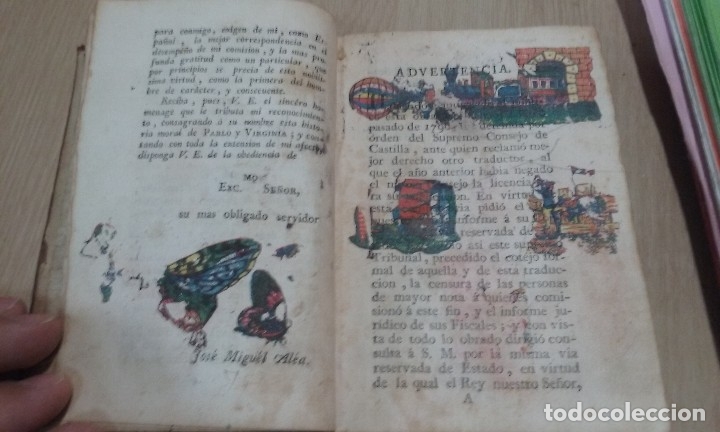 para conmigo, exigen de mí, como Es-
pañol, la mejor correspondencia en el
desempeño de mi comision, y la mas pro-
funda gratitud como un particular, que
por principios se precia de esta
virtud, como la primera del hom-
bre de carácter, y conseqüente.
Reciba, pues, V. E. el sincéro ho-
menage que le tributa mi reconocimiento
, consagrando á su nombre esta histo-
ria moral de PABLO Y VIRGINIA; y con-
tando con toda la extension de mi afecto
disponga V. E. de la obediencia de
MO
EXC. SEÑOR,
su mas obligado servidor
José Miguél Aléa.
ADVERTENCIA.
pasado de 1796
órden del Supremo Consejo de
Castilla, ante quien reclamó me-
jor derecho otro traductor, al
que el año anterior había negado
el la licencia
su En virtud
pidió el
informe á su
reservada de
así este
Tribunal, precedido el cotejo for-
mal de aquella y de esta traduc-
cion, la censura de las personas
de mayor nota á quienes comi-
sionó á este fin, y el informe ju-
rídico de sus Fiscales; y con vis-
ta de todo lo obrado dirigió con-
sulta á S. M. por la misma via
reservada de Estado, en virtud
de la qual el Rey nuestro Señor,
A
todocoleccion